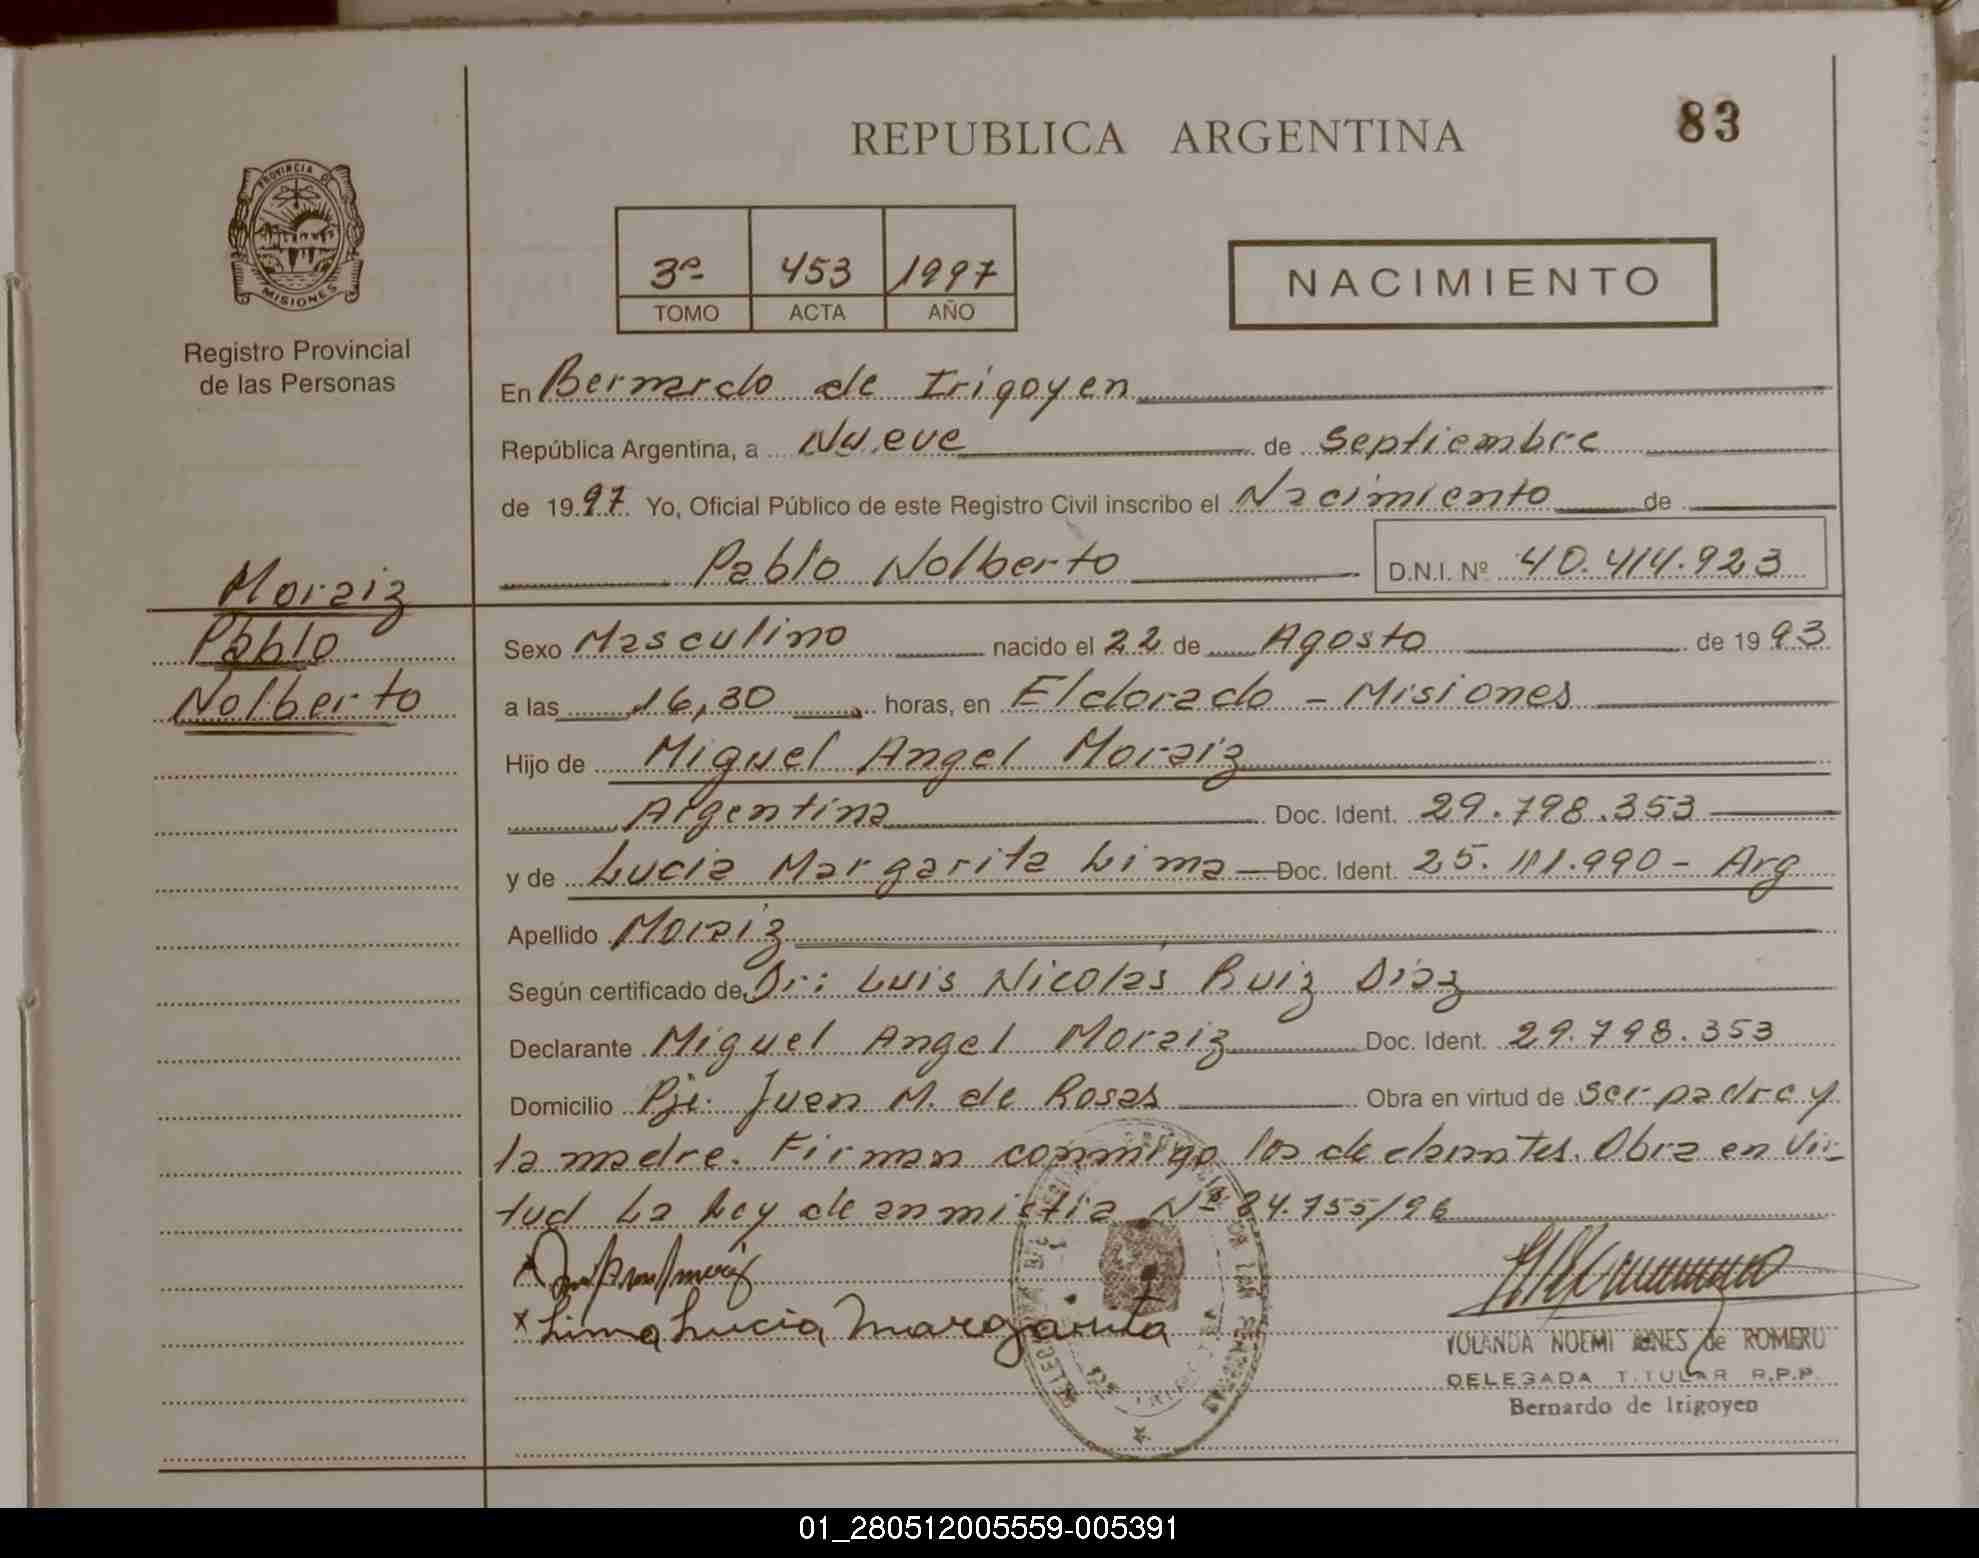 REPUBLICA ARGENTINA
83
PROVINCIA DE
MISIONES
Registro Provincial
de las Personas
3º 453 1997
TOMO ACTA AÑO
NACIMIENTO
En Bernardo de Irigoyen
República Argentina, a Nueve de Septiembre
de 1997 Yo, Oficial Público de este Registro Civil inscribo el Nacimiento de
Pablo Nolberto D.N.I. Nº 40.414.923
Moraiz
Pablo
Nolberto
Sexo Masculino nacido el 22 de Agosto de 1993
a las 16,30 horas, en Eldorado - Misiones
Hijo de Miguel Angel Moraiz
Argentina Doc. Ident. 29.798.353
y de Lucia Margarita Lima Doc. Ident. 25.111.990 - Arg
Apellido Moraiz
Según certificado de Dr: Luis Nicolás Ruiz Diaz
Declarante Miguel Angel Moraiz Doc. Ident. 29.798.353
Domicilio Pje. Juan M. de Rosas Obra en virtud de ser padre y
la madre. Firman conmigo los declarantes. Obra en vir-
tud La Ley de anmistia Nº 24.755/96
x Lima Lucia Margarita
YOLANDA NOEMI de ROMERO
DELEGADA TITULAR R.P.P.
Bernardo de Irigoyen
01_280512005559-005391